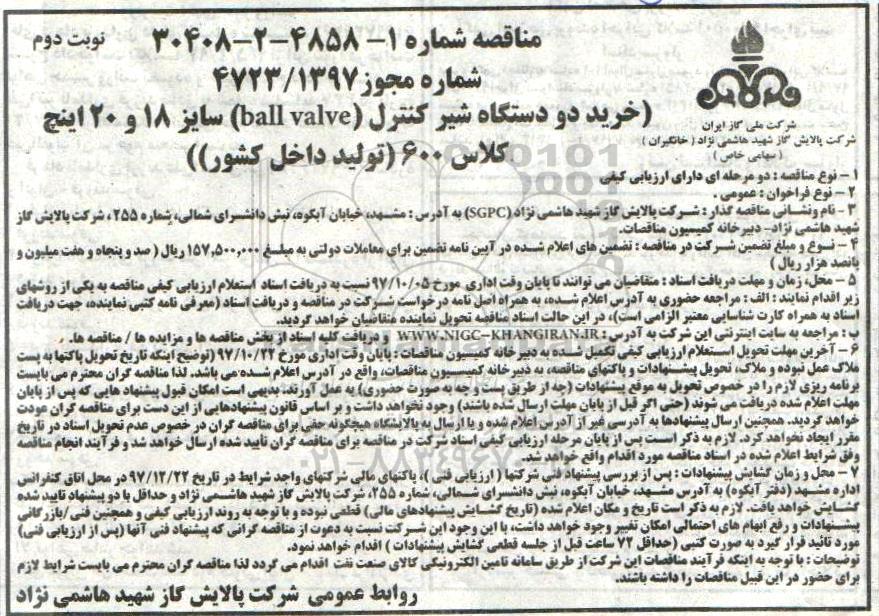 مناقصه شماره ۱- ۴۸۵۸-۲-۳۰۴۰۸
نوبت دوم
شماره مجوز ۴۷۲۳/۱۳۹۷
(خرید دو دستگاه شیر کنترل (ball valve) سایز ۱۸ و ۲۰ اینچ
کلاس ۶۰۰ (تولید داخل کشور))
شرکت ملی گاز ایران
شرکت پالایش گاز شهید هاشمی نژاد ( خانگیران )
( سهامی خاص )
۱- نوع مناقصه : دو مرحله ای دارای ارزیابی کیفی
۲- نوع فراخوان : عمومی .
۳- نام ونشانی مناقصه گذار : شرکت پالایش گاز شهید هاشمی نژاد (SGPC) به آدرس : مشهد، خیابان آبکوه، نبش دانشسرای شمالی، شماره ۲۵۵ ، شرکت پالایش گاز
شهید هاشمی نژاد- دبیرخانه کمیسیون مناقصات.
۴- نوع و مبلغ تضمین شرکت در مناقصه : تضمین های اعلام شده در آیین نامه تضمین برای معاملات دولتی به مبلغ ۱۵۷,۵۰۰,۰۰۰ ریال ( صد و پنجاه و هفت میلیون و
پانصد هزار ریال )
۵- محل، زمان و مهلت دریافت اسناد : متقاضیان می توانند تا پایان وقت اداری مورخ ۹۷/۱۰/۰۵ نسبت به دریافت اسناد استعلام ارزیابی کیفی مناقصه به یکی از روشهای
زیر اقدام نمایند : الف : مراجعه حضوری به آدرس اعلام شده، به همراه اصل نامه درخواست شرکت در مناقصه و دریافت اسناد (معرفی نامه کتبی نماینده، جهت دریافت
اسناد به همراه کارت شناسایی معتبر الزامی است)، در این حالت اسناد مناقصه تحویل نماینده متقاضیان خواهد گردید.
ب : مراجعه به سایت اینترنتی این شرکت به آدرس : WWW.NIGC-KHANGIRAN.IR و دریافت کلیه اسناد از بخش مناقصه ها و مزایده ها / مناقصه ها.
۶- آخرین مهلت تحویل استعلام ارزیابی کیفی تکمیل شده به دبیرخانه کمیسیون مناقصات : پایان وقت اداری مورخ ۹۷/۱۰/۲۲ (توضیح اینکه تاریخ تحویل پاکتها به پست
ملاک عمل نبوده و ملاک، تحویل پیشنهادات و پاکتهای مناقصه، به دبیرخانه کمیسیون مناقصات، واقع در آدرس اعلام شده می باشد. لذا مناقصه گران محترم می بایست
برنامه ریزی لازم را در خصوص تحویل به موقع پیشنهادات (چه از طریق پست و چه به صورت حضوری) به عمل آورند. بدیهی است امکان قبول پیشنهاد هایی که پس از پایان
مهلت اعلام شده دریافت می شوند (حتی اگر قبل از پایان مهلت ارسال شده باشند) وجود نخواهد داشت و بر اساس قانون پیشنهادهایی از این دست برای مناقصه گران عودت
خواهد گردید. همچنین ارسال پیشنهادها به آدرسی غیر از آدرس اعلام شده و یا ارسال به پالایشگاه هیچگونه حقی برای مناقصه گران در خصوص عدم تحویل اسناد در تاریخ
مقرر ایجاد نخواهد کرد. لازم به ذکر است پس از پایان مرحله ارزیابی کیفی اسناد شرکت در مناقصه برای مناقصه گران تأیید شده ارسال خواهد شد و فرآیند انجام مناقصه
وفق شرایط اعلام شده در اسناد مناقصه مورد اقدام واقع خواهد شد.
۷- محل و زمان گشایش پیشنهادات : پس از بررسی پیشنهاد فنی شرکتها ( ارزیابی فنی )، پاکتهای مالی شرکتهای واجد شرایط در تاریخ ۹۷/۱۲/۲۲ در محل اتاق کنفرانس
اداره مشهد (دفتر آبکوه) به آدرس مشهد، خیابان آبکوه، نبش دانشسرای شمالی، شماره ۲۵۵، شرکت پالایش گاز شهید هاشمی نژاد و حداقل با دو پیشنهاد تایید شده
گشایش خواهد یافت. لازم به ذکر است تاریخ و مکان اعلام شده (تاریخ گشایش پیشنهادهای مالی) قطعی نبوده و با توجه به روند ارزیابی کیفی و همچنین فنی/بازرگانی
پیشنهادات و رفع ابهام های احتمالی امکان تغییر وجود خواهد داشت، با این وجود این شرکت نسبت به دعوت از مناقصه گرانی که پیشنهاد فنی آنها (پس از ارزیابی فنی)
مورد تائید قرار گیرد به صورت کتبی (حداقل ۷۲ ساعت قبل از جلسه قطعی گشایش پیشنهادات ) اقدام خواهد نمود.
توضیحات : با توجه به اینکه فرآیند مناقصات این شرکت از طریق سامانه تامین الکترونیکی کالای صنعت نفت اقدام می گردد لذا مناقصه گران محترم می بایست شرایط لازم
برای حضور در این قبیل مناقصات را داشته باشند.
روابط عمومی شرکت پالایش گاز شهید هاشمی نژاد